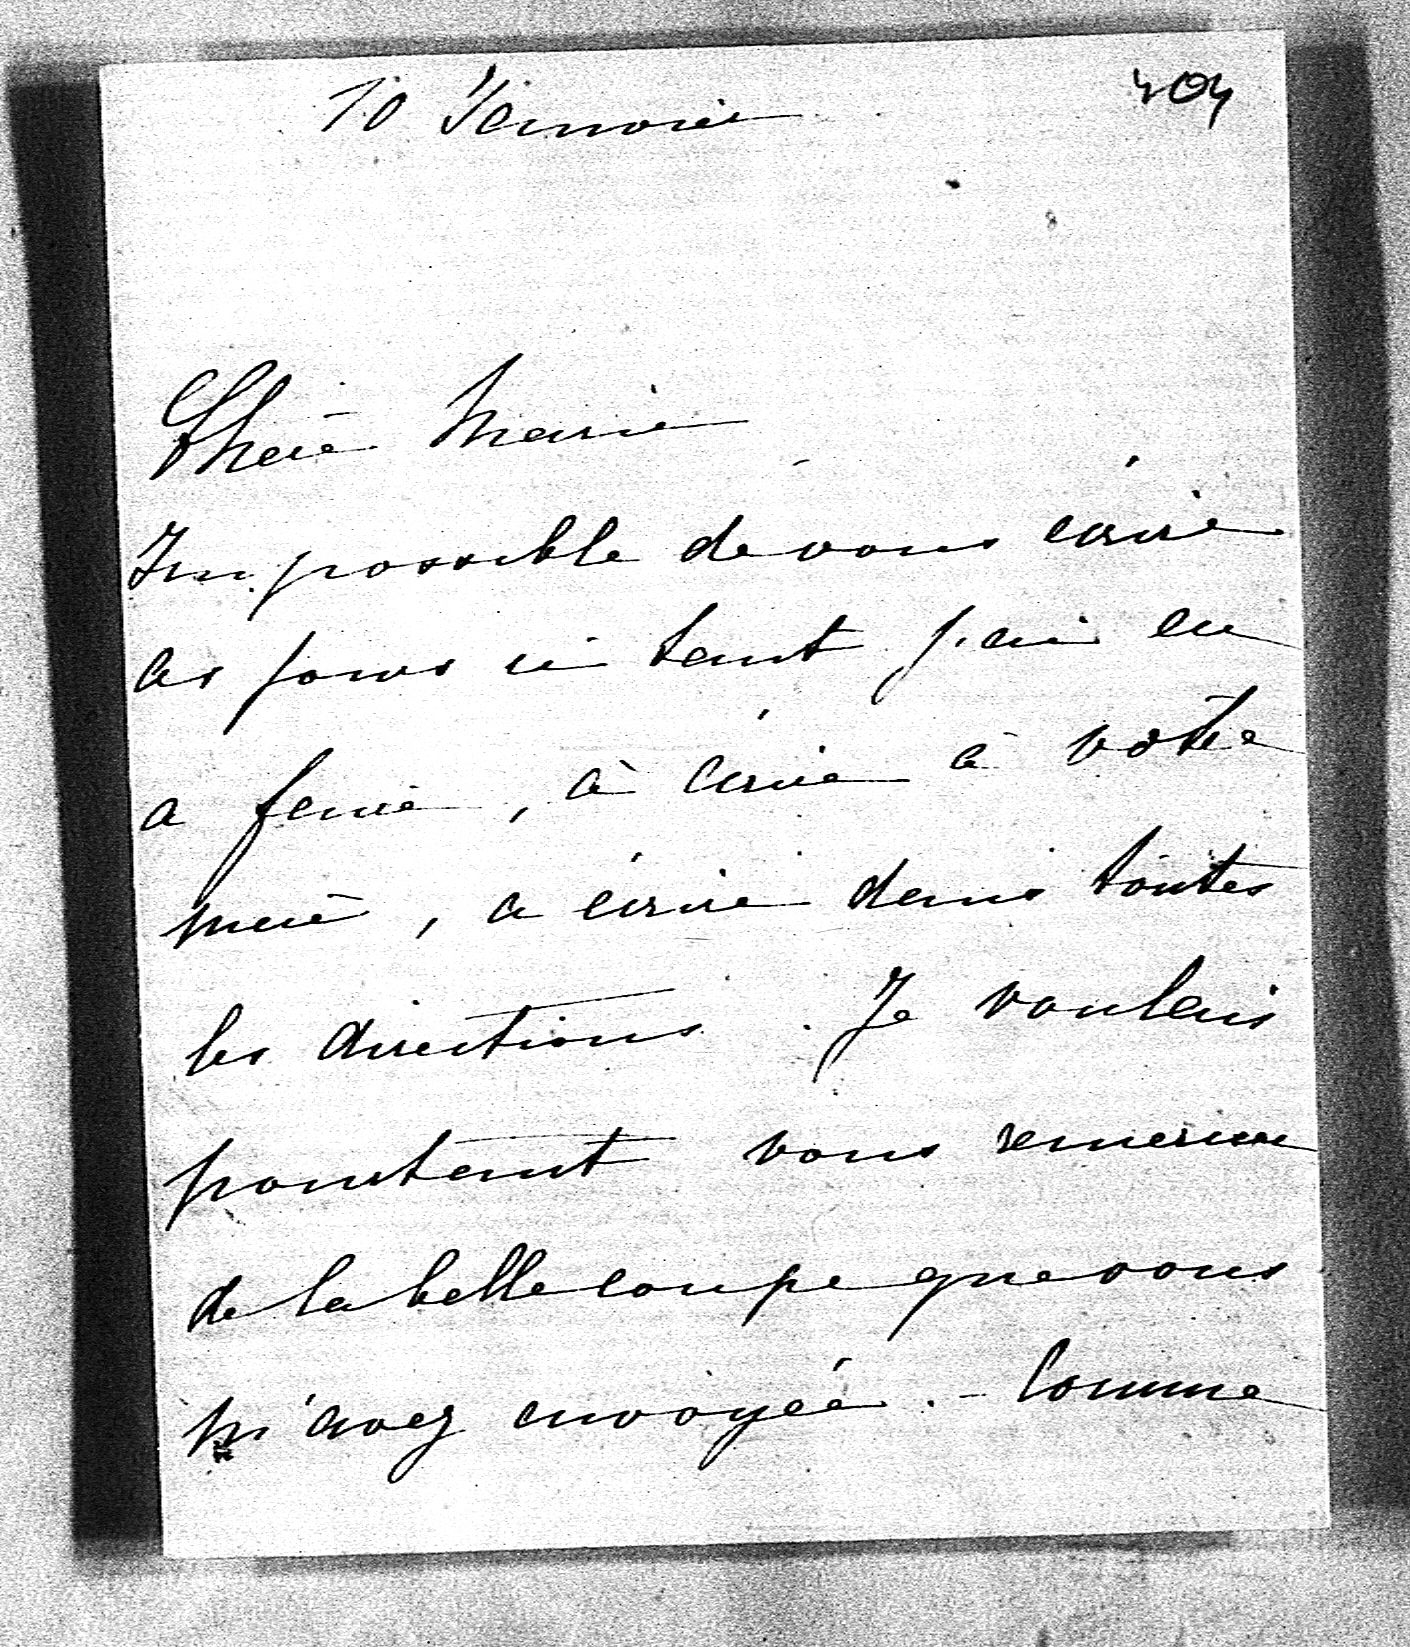 10 Janvier
404
Chère Marie
Impossible de vous écrire
ces jours ci tant j'ai eu
a faire, à écrire à votre
mère, a écrire dans toutes
les directions. Je voulais
pourtant vous remercier
de la belle coupe que vous
m'avez envoyée. - Comme